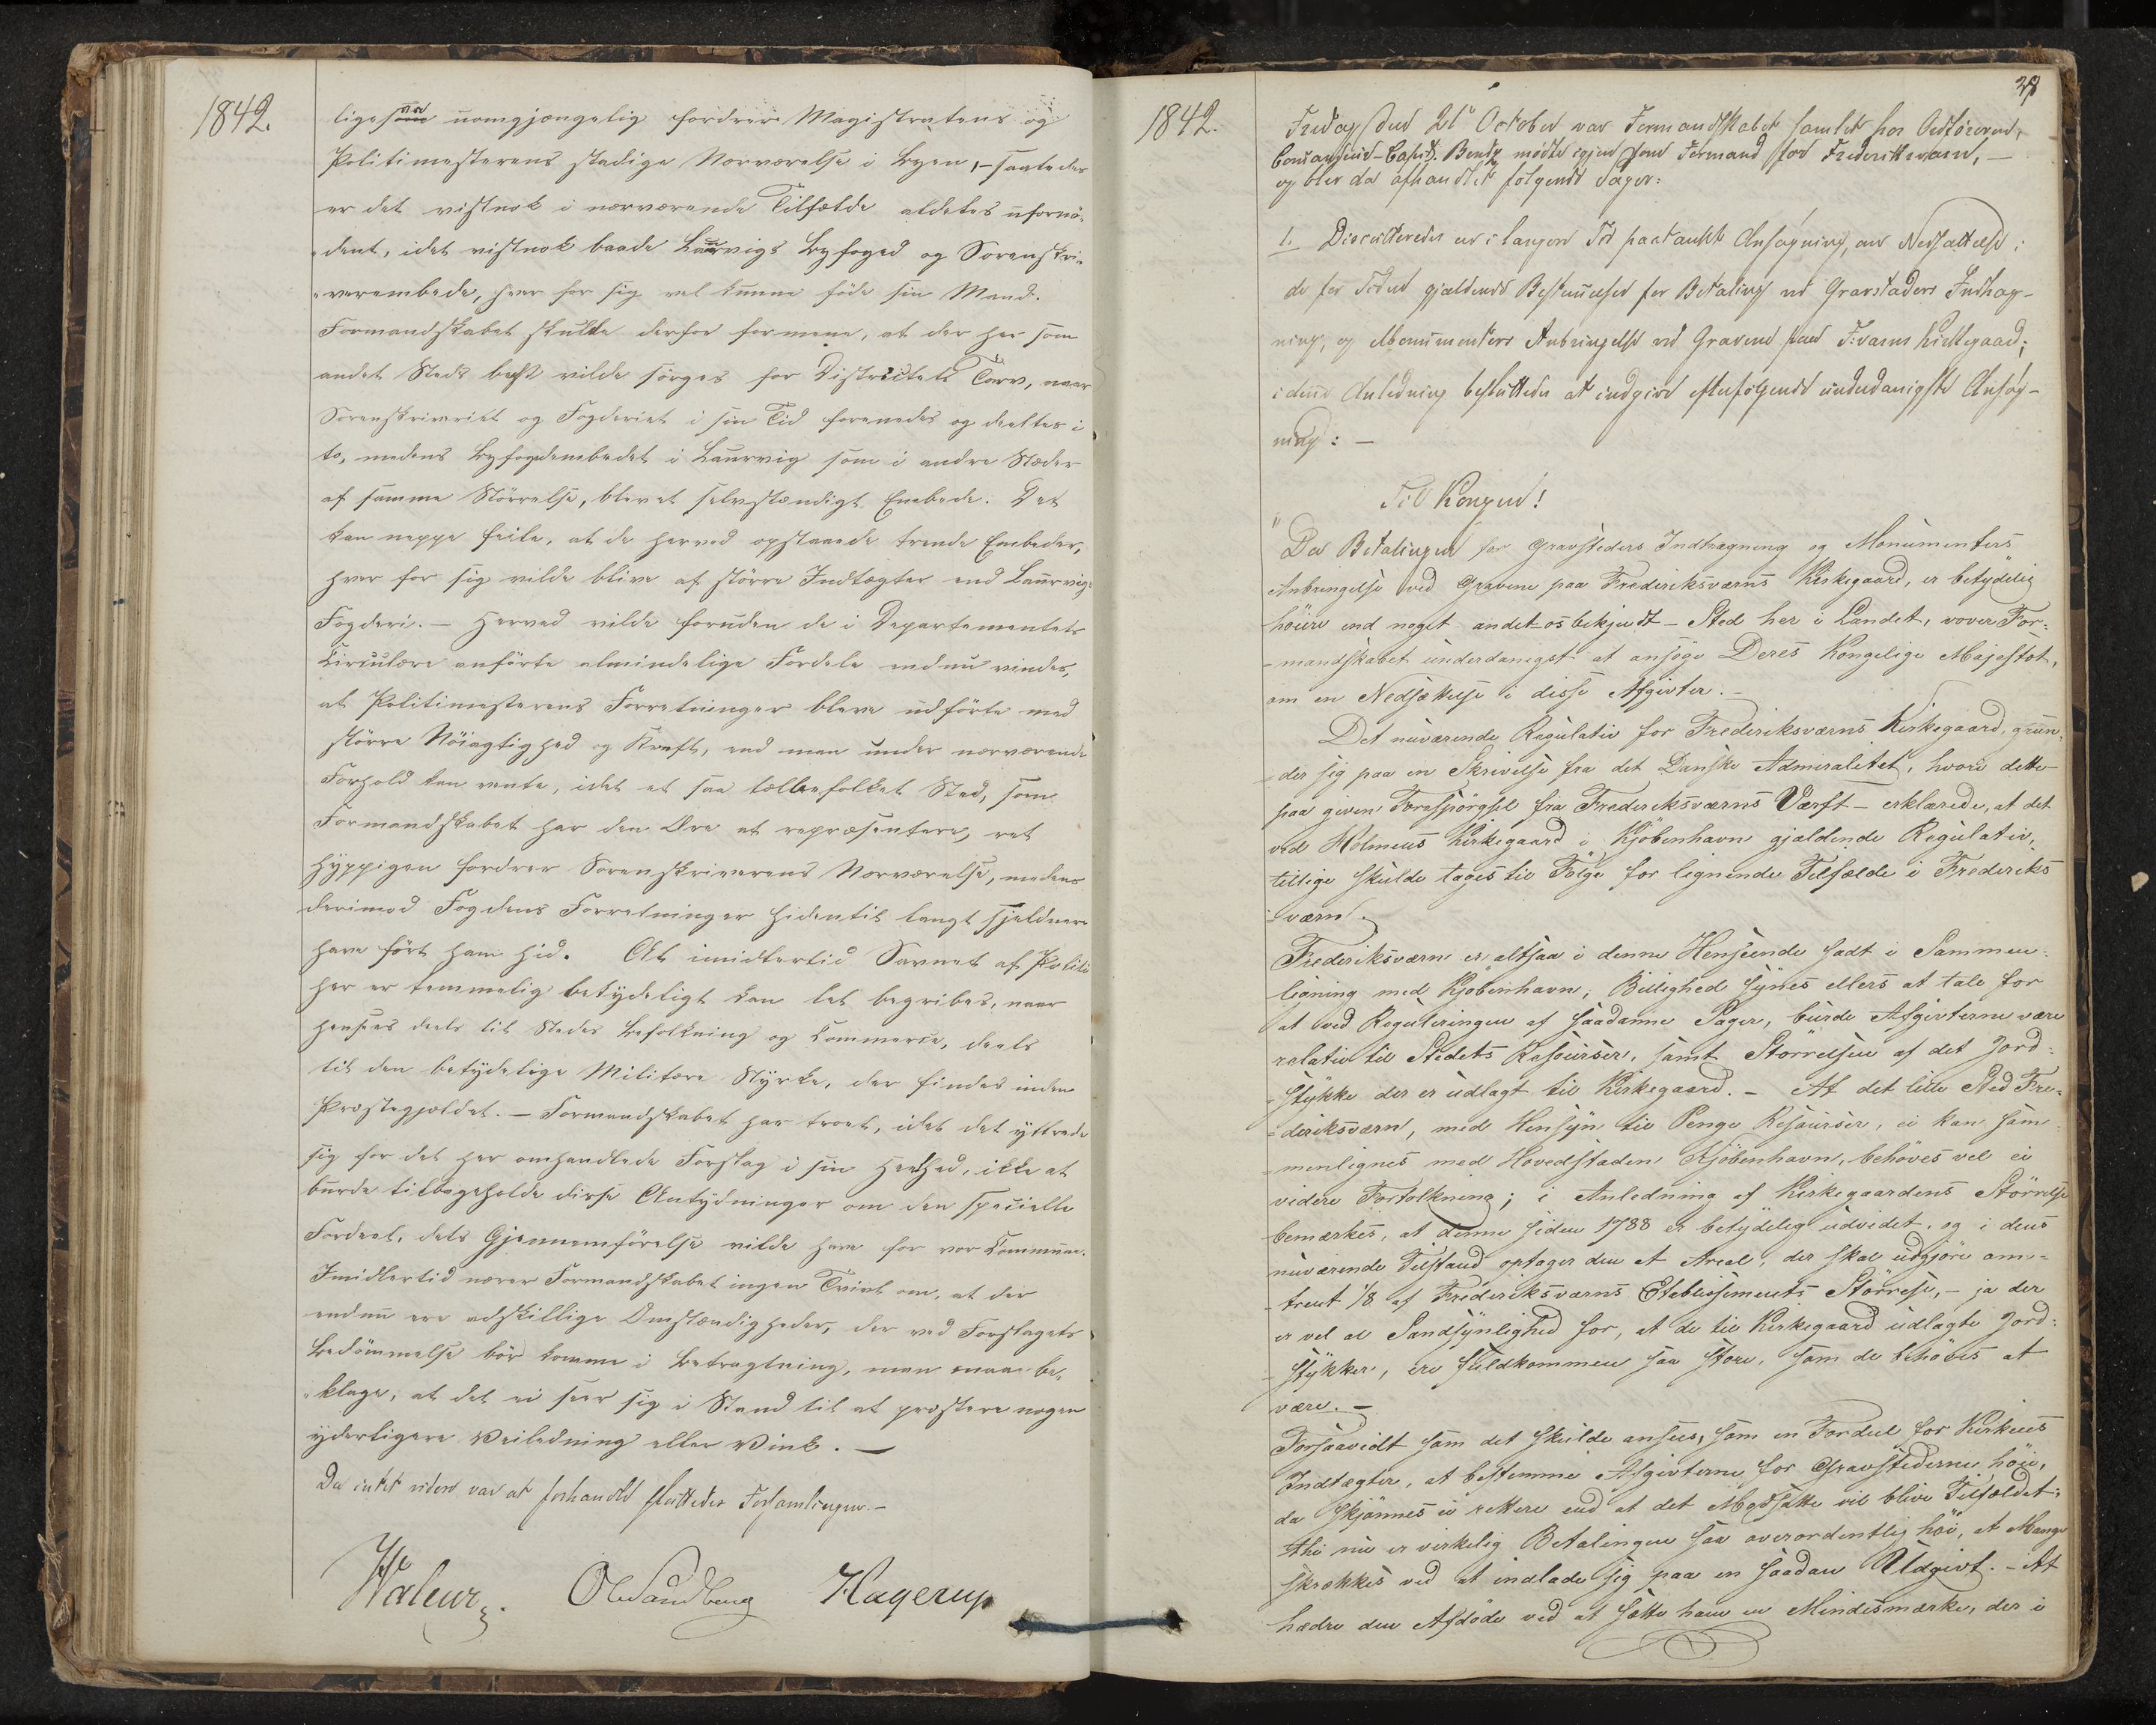 1842.
ligesom uomgjængelig fordrer Magistratens og
Politimesterens stadige Nærværelse i Byen, – saaledes
er det vistnok i nærværende Tilfælde aldeles ufornö-
dent, idet vistnok baade Laurvigs Byfoged og Sorenskri-
verembede, hver for sig vel kunne föde sin Mand.
Formandskabet skulde derfor formene, at der her som
andet Steds best vilde sörges for Districtets Tarv, naar
Sorenskriveriet og Fogderiet i sin Tid forenedes og deeltes i
to, medens Byfogdembedet i Laurvig som i andre Stæder
af samme Störrelse, blev et selvstændigt Embede. Det
kan neppe feile, at de herved opstaaede trende Embeder,
hver for sig vilde blive af större Indtægter end Laurvigs
Fogderi. – Herved vilde foruden de i Departementets
Circulære anförte almindelige Fordele endnu vindes,
at Politimesterens Forretninger bleve udförte med
större Nöiagtighed og Kraft, end man under nærværende
Forhold kan vente, idet et saa tætbefolket Sted, som
Formandskabet har den Ære at repræsentere, ret
hyppigen fordrer Sorenskriverens Nærværelse, medens
derimod Fogdens Forretninger hidentil langt sjeldnere
have fört ham hid. At imidlertid Savnet af Politi
her er temmelig betydeligt kan let begribes, naar
henses deels til Stedes Befolkning og Commerce, deels
til den betydelige Militære Styrke, der findes inden
Præstegjældet. – Formandskabet har troet, idet det yttrede
sig for det her omhandlede Forslag i sin Heelhed, ikke at
burde tilbageholde disse Antydninger om den specielle
Fordeel, dets Gjennemförelse vilde have for vor Commune.
Imidlertid nærer Formandskabet ingen Tvivl om, at der
endnu ere adskillige Omstændigheder, der ved Forslagets
Bedömmelse bör komme i Betragtning, men maae be-
klage, at det ei seer sig i Stand til at præstere nogen
yderligere Veiledning eller Vink. –
Da intet videre var at forhandle sluttedes Forsamlingen. –
Waleur. O Sandberg Hagerup
28
1842.
Fredag den 21de October var Formandskabet samlet hos Ordföreren,
Commandeur-Capit. Bentz mödte igjen som Formand for Frederiksværn, –
og blev da afhandlet fölgende Sager:
1. Discuteredes en i langere Tid paatænkt Ansögning, om Nedsættelse i
de for Tiden gjældende Bestemmelser for Betaling ved Gravstæders Indhæg-
ning, og Monumenters Anbringelse ved Gravene paa F:værns Kirkegaard;
i denne Anledning besluttedes at indgive efterfölgende underdanigste Ansög-
ning: –
Til Kongen!
"Da Betalingen for Gravsteders Indhægning og Monumenters
Anbringelse ved Gravene paa Frederiksværns Kirkegaard, er betydelig
höiere end noget andet os bekjendt – Sted her i Landet, vover For-
mandskabet underdanigst at ansöge Deres Kongelige Majestæt,
om en Nedsættelse i disse Afgivter. –
Det nuværende Regulativ for Frederiksværns Kirkegaard, grun-
der sig paa en Skrivelse fra det Danske Admiralitet, hvori dette
paa given Forespörgsel fra Frederiksværns Værft – erklærede, at det
ved Holmens Kirkegaard i Kjöbenhavn gjældende Regulativ,
tillige skulde tages til Fölge for lignende Tilfælde i Frederiks
værn.
Frederiksværn er altsaa i denne Henseende sadt i Sammen-
ligning med Kjöbenhavn; Billighed synes ellers at tale for
at ved Reguleringen af saadanne Sager, burde Afgivterne være
relativ til Stedets Resourser, samt Störrelsen af det Jord-
stykke der er udlagt til Kirkegaard. – At det lille Sted Fre-
deriksværn, med Hensyn til Penge Resourser, ei kan sam-
menlignes med Hovedstaden Kjöbenhavn, behöves vel ei
videre Fortolkning; i Anledning af Kirkegaardens Störrelse
bemærkes, at denne siden 1788 er betydelig udvidet, og i dens
nuværende Tilstand optager den et Areal, der skal udgjöre om-
trent 1/8 af Frederiksværns Etablissements Störrelse, – ja der
er vel al Sandsynlighed for, at de til Kirkegaard udlagte Jord-
stykker, ere fuldkommen saa store, som de behöves at
være. –
Forsaavidt som det skulde ansees, som en Fordeel for Kirkens
Indtægter, at bestemme Afgivterne for Gravstederne höie,
da skjönnes ei rettere end at det Modsatte vil blive Tilfældet;
thi nu er virkelig Betalingen saa overordentlig höi, at Mange
skrækkes ved at indlade sig paa en saadan Udgivt. – At
hædre den Afdöde ved at sætte ham en Mindesmærke, der i